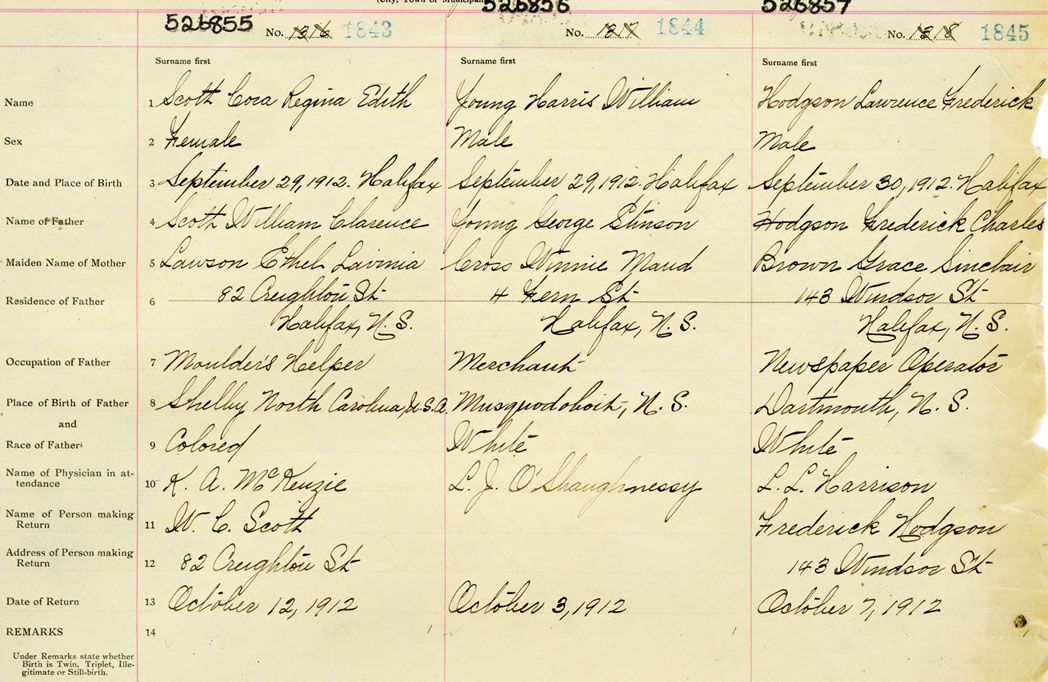 (City, Town or Municipality)
526855 526856 526857
No. 1316 1843 No. 1317 1844 No. 1318 1845
Surname first Surname first Surname first
Name 1 Scott Cora Regina Edith Young Harris William Hodgson Lawrence Frederick
Sex 2 Female Male Male
Date and Place of Birth 3 September 29, 1912. Halifax September 29, 1912. Halifax September 30, 1912. Halifax
Name of Father 4 Scott William Clarence Young George Stinson Hodgson Frederick Charles
Maiden Name of Mother 5 Lawson Ethel Lavinia Cross Winnie Maud Brown Grace Sinclair
Residence of Father 6 82 Creighton St 4 Fern St 143 Windsor St
Halifax, N. S. Halifax, N. S. Halifax, N. S.
Occupation of Father 7 Moulder's Helper Merchant Newspaper Operator
Place of Birth of Father 8 Shelby North Carolina, U.S.A. Musquodoboit, N. S. Dartmouth, N. S.
and
Race of Father 9 Colored White White
Name of Physician in at-
tendance 10 K. A. McKenzie L. J. O'Shaughnessy L. L. Harrison
Name of Person making
Return 11 W. C. Scott Frederick Hodgson
Address of Person making
Return 12 82 Creighton St 143 Windsor St
Date of Return 13 October 12, 1912 October 3, 1912 October 7, 1912
REMARKS 14
Under Remarks state whether
Birth is Twin, Triplet, Ille-
gitimate or Still-birth.